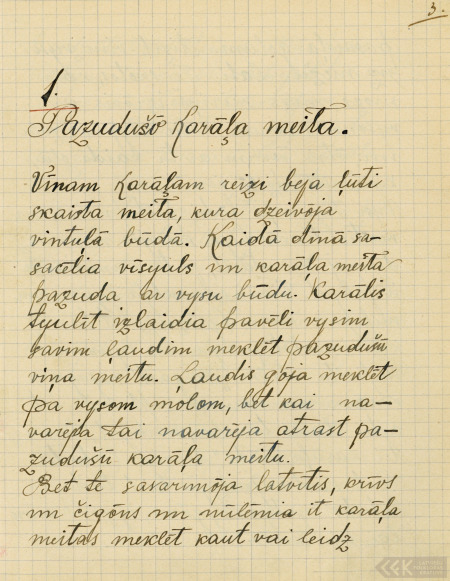 3.
1.
Pazudušō karāļa meita.
Vīnam karāļam reizi beja ļūti
skaista meita, kura dzeivōja
vintuļā būdā. Kaidā dīnā sa-
sacēlia vīsyuls un karāļa meita
pazuda ar vysu būdu. Karālis
tyuļīt izlaidia pavēli vysim
savim ļaudim meklēt pazudušū
viņa meitu. Laudis gōja meklēt
pa vysom molom, bet kai na-
varēja tai navarēja atrast pa-
zudušū karāļa meitu.
Bet te sasarunōja latvītis, krīvs
un čigōns un nūlēmia it karāļa
meitas meklēt kaut vai leidz